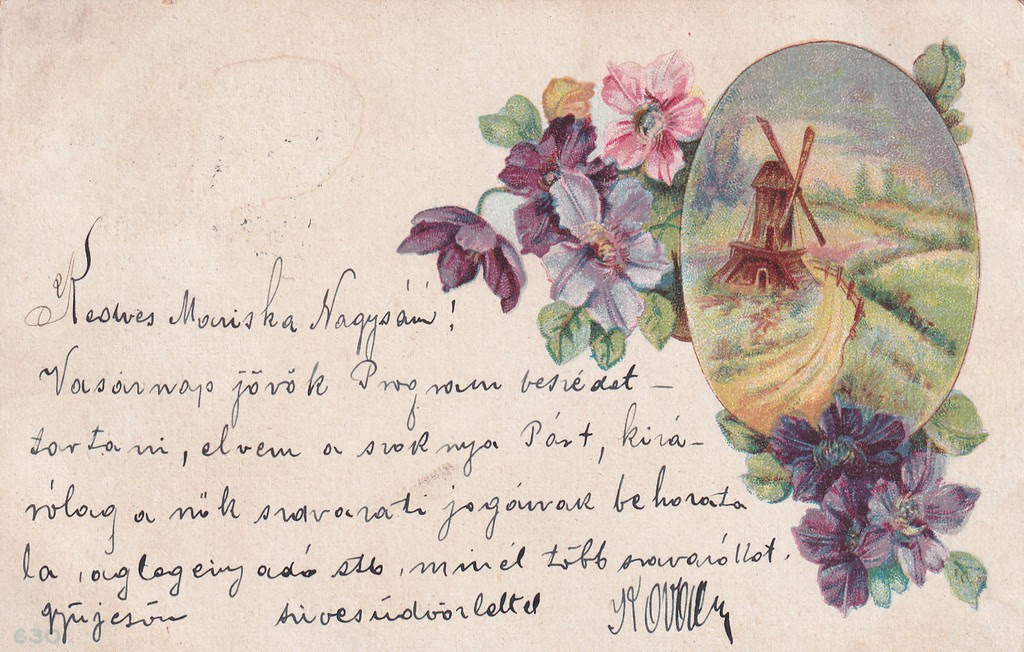 Kedves Mariska Nagysám!
Vasárnap jövök Program beszédet
tartani, elvem a szoknya Párt, kizá-
rólag a nők szavazati jogának behozata
la, agglegény adó stb, minél több szavazóllot.
gyüjcsön szivesüdvözlettel